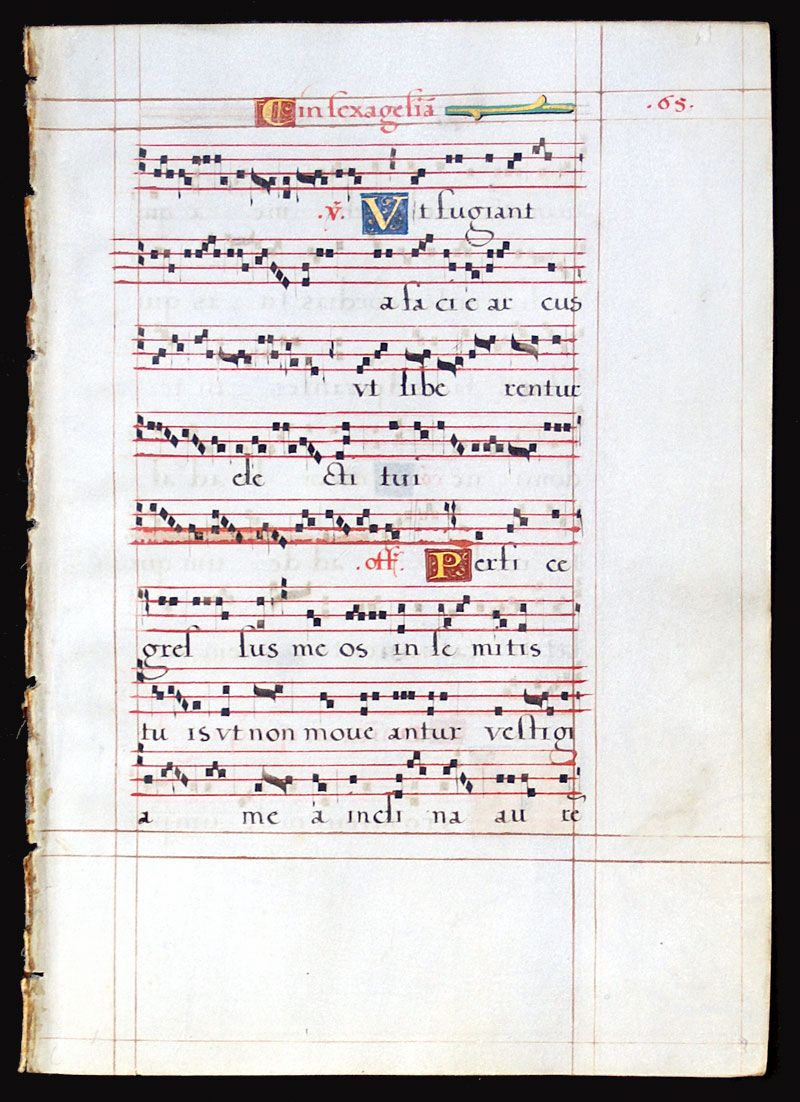 In sexagesiā .65.
.v̄. Vt fugiant
a facie ar cus
vt libe rentur
ele cti tui
.off. Persi ce
gres sus me os in se mitis
tu is vt non moue antur vestigi
a me a incli na au re